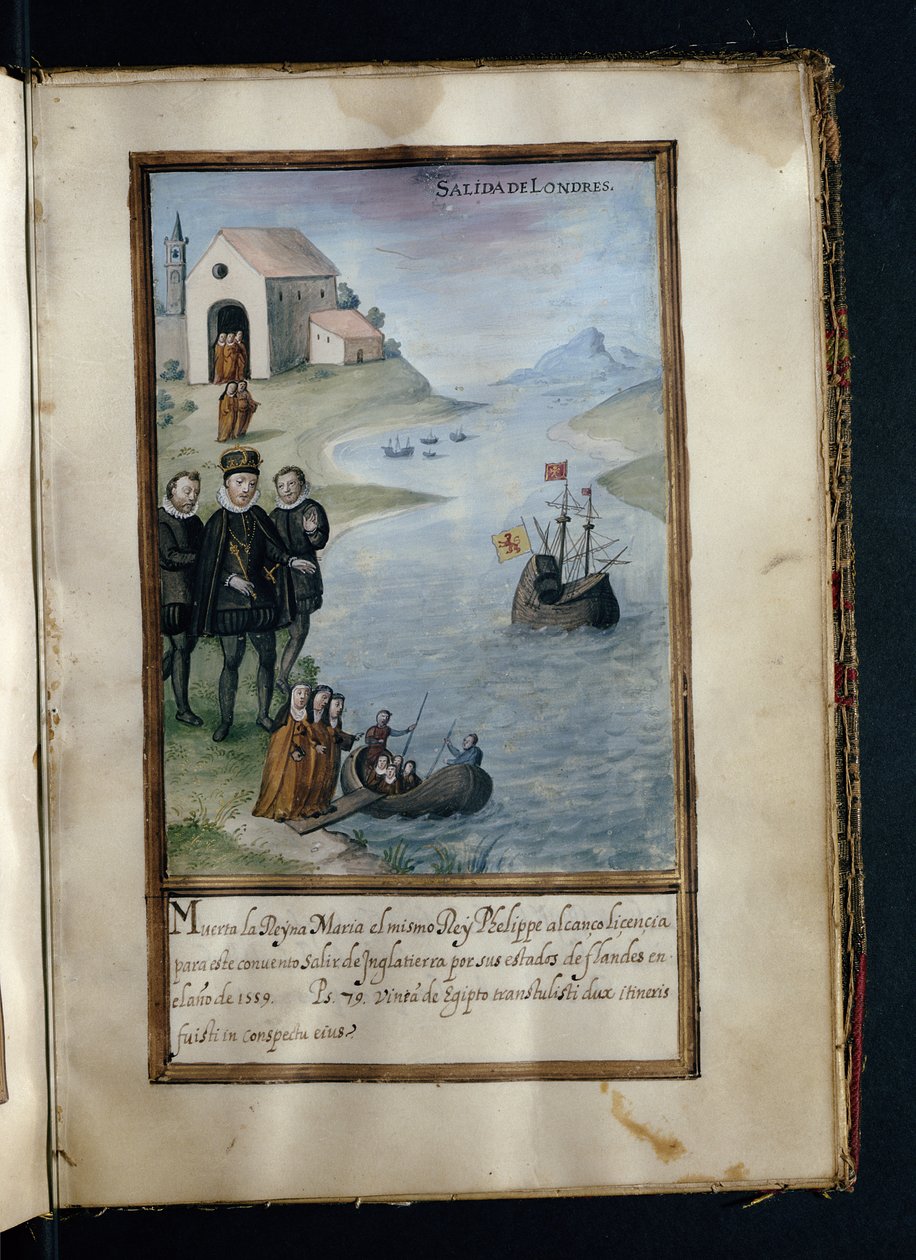 SALIDA DE LONDRES.
Muerta la Reyna Maria el mismo Rey Phelippe alcanco licencia
para este convento Salir de Jnglatierra por sus estados de flandes en
el año de 1559. Ps. 79. vineã de Egipto transtulisti dux itineris
fuisti in conspectu eius